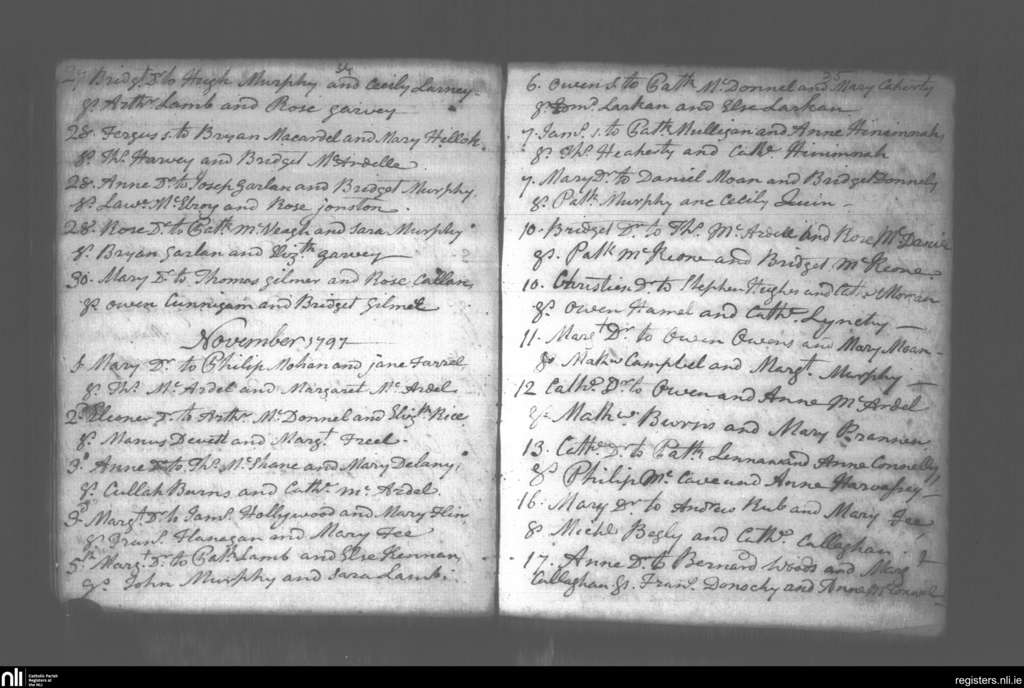 34
27 Bridgt Dr to Hugh Murphy and Cecily Larney
gs Arthr Lamb and Rose garvey
28. Fergus s. to Bryan Macardel and Mary
gs. Ths. Harvey and Bridget McArdelle
28. Anne Dr. to Joseph garlan and Bridget Murphy
gs. Lawe. McElroy and Rose jonston.
28. Rose Dr. to Patk mcVeagh and Sara Murphy
gs. Bryan Garlan and Elizth garvey
30. Mary Dr to Thomas gilmer and Rose Callan,
gs owen Cunnigam and Bridget Gilmer
November 1797
Mary Dr. to Philip Mohan and jane Farrel,
gs. Ths. McArdel and Margaret McArdel
2d Eleoner Dr. to Arthr McDonnel and Elizth Rice
gs. Manus Devett and Margt. Treel.
3d Anne Dr to. Ths. McShane and Mary Delany,
gs. Cullah Burns and Cathe. mcArdel
3d Margt. Dr. to Jams. Hollywood and Mary
gs Frans. Flanagan and Mary Fee
5th Margt. Dr. to Patk Lamb and Else Kennan,
gs. John Murphy and Sara Lamb.
35
6. Owen s. to Patk. McDonnel and Mary
gs Edmd. Larkan and Else Larkan
7. Jams. s. to Patk Mulligan and Anne Hininnah,
gs. Ths. Heaherty and Cathe. Hininnah
7. Mary Dr. to Daniel Moan and Bridget Donnely
gs. Patk Murphy anc Cecily Quin
10. Bridget Dr. to Ths. McArdel and Rose McDaniel
gs. Patk mcKeone and Bridget mcKeone.
10. Christien Dr to Stephen Hughes and Moran
gs. Owen Hamel and Cathe.
11. Margt Dr. to Owen Owens and Mary Moan
gs Mathw Campbel and Margt. Murphy
12 Cathe. Dr. to Owen and Anne McArdel
gs. Mathw. Burns and Mary Brannen
13. Cathe. Dr. to Patk Lennan and Anne Connelly
gs Philip McCave and Anne
16. Mary Dr. to Andrew Rub and Mary Fee,
gs Michl Begly and Cathe. Callaghan.
17. Anne Dr. to Bernard Woods and Margt
Callaghan gs. Frans. Donochy and Anne McConnel
nli
Catholic Parish
Registers at
the NLI
registers.nli.ie